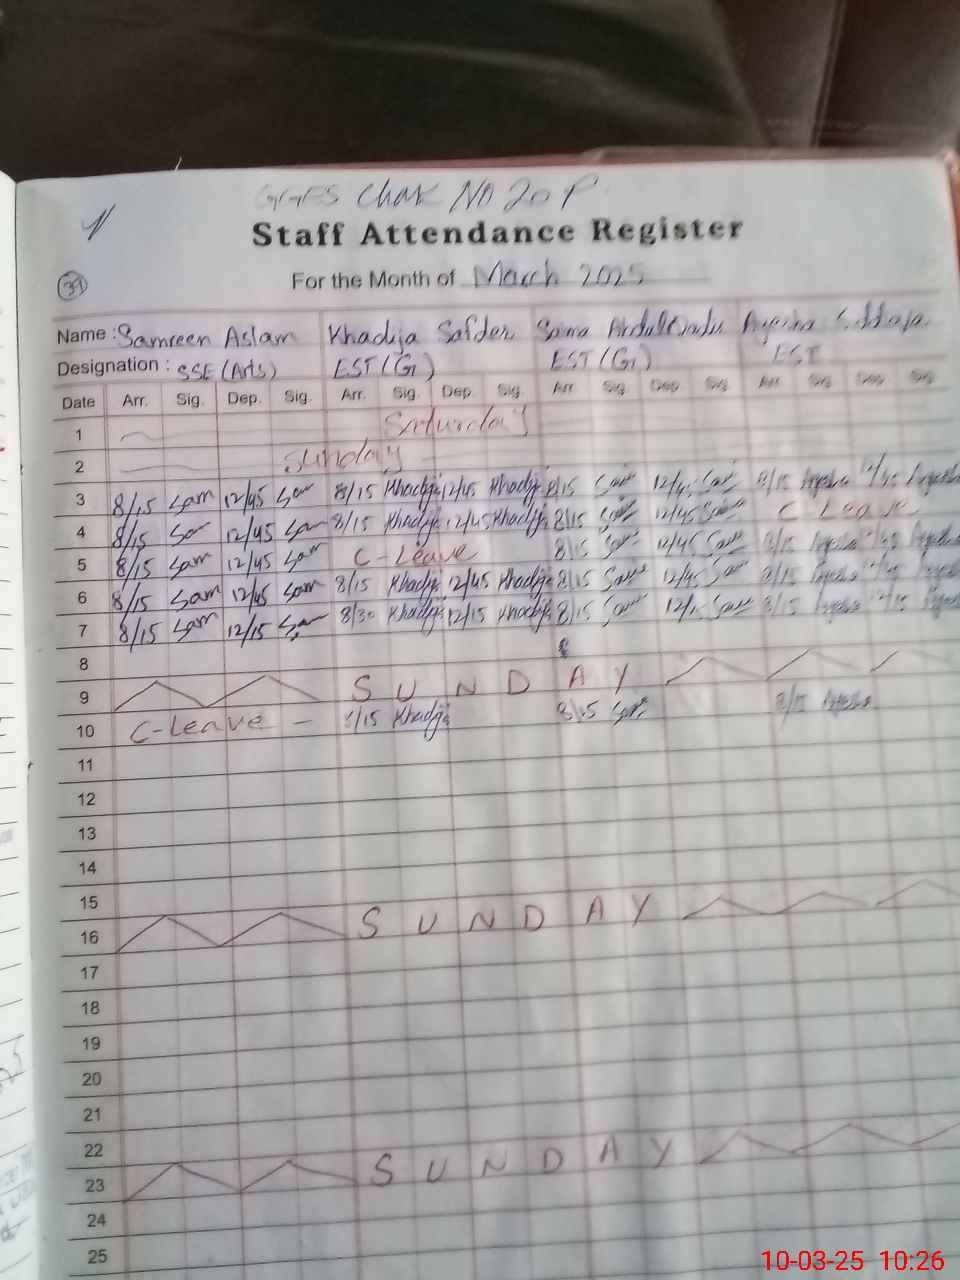 GGES Chak No 20 P
Staff Attendance Register
31
For the Month of March 2025
Name : Samreen Aslam Khadija Safder Ayesha
Designation : SSE (Arts) EST (G) EST (G) EST
Date Arr. Sig. Dep. Sig. Arr. Sig. Dep. Sig. Arr. Sig. Dep. Sig. Arr. Sig. Dep. Sig.
1 Saturday
2 Sunday
3 8/15 Sam 12/45 Sam 8/15 Khadija 12/45 Khadija 8/15 12/45 8/15 Ayesha 12/45 Ayesha
4 8/15 Sam 12/45 Sam 8/15 Khadija 12/45 Khadija 8/15 12/45 C Leave
5 8/15 Sam 12/45 Sam C-Leave 8/15 12/45 8/15 Ayesha 12/45 Ayesha
6 8/15 Sam 12/45 Sam 8/15 Khadija 12/45 Khadija 8/15 12/45 8/15 Ayesha 12/45 Ayesha
7 8/15 Sam 12/15 Sam 8/30 Khadija 12/15 Khadija 8/15 8/15 Ayesha 12/15 Ayesha
8
9 SUNDAY
10 C-Leave - 8/15 Khadija 8/15 8/15 Ayesha
11
12
13
14
15
16 SUNDAY
17
18
19
20
21
22
23 SUNDAY
24
25
10-03-25 10:26